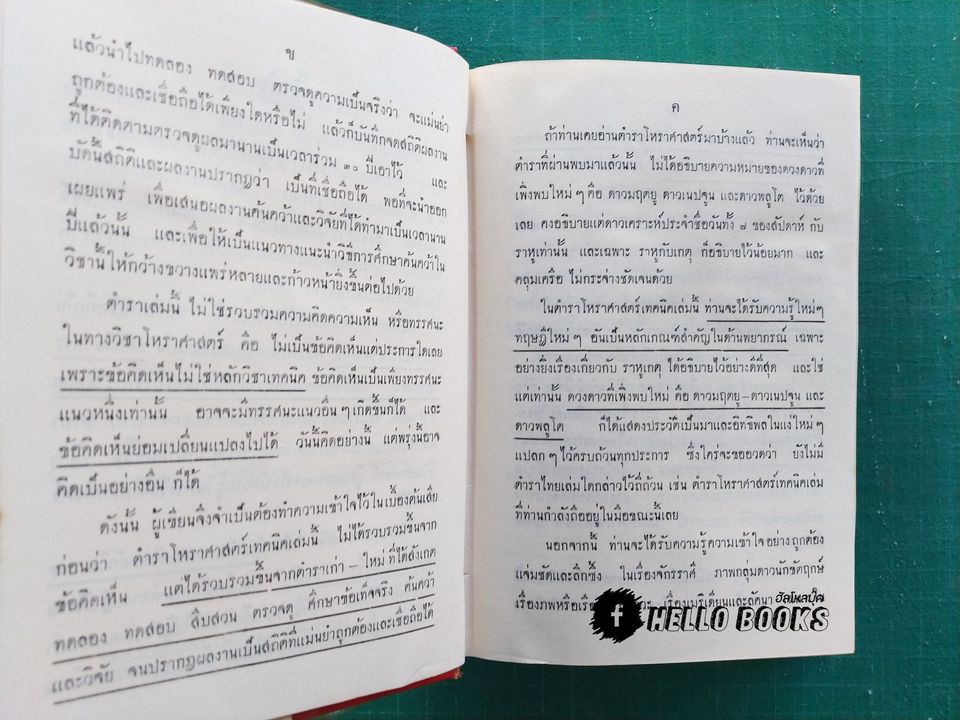 ข
แล้วนำไปทดลอง ทดสอบ ตรวจดูความเป็นจริงว่า จะแม่นยำ
ถูกต้องและเชื่อถือได้เพียงใดหรือไม่ แล้วก็บันทึกจดสถิติผลงาน
ที่ได้ติดตามตรวจดูผลมานานเป็นเวลาร่วม ๓๐ ปีเอาไว้ และ
บัดนี้สถิติและผลงานปรากฏว่า เป็นที่เชื่อถือได้ พอที่จะนำออก
เผยแพร่ เพื่อเสนอผลงานค้นคว้าและวิจัยที่ได้ทำมาเป็นเวลานาน
ปีแล้วนั้น และเพื่อให้เป็นแนวทางแนะนำวิธีการศึกษาค้นคว้าใน
วิชานี้ให้กว้างขวางแพร่หลายและก้าวหน้ายิ่งขึ้นต่อไปด้วย
ตำราเล่มนี้ ไม่ใช่รวบรวมความคิดความเห็น หรือทรรศนะ
ในทางวิชาโหราศาสตร์ คือ ไม่เป็นข้อคิดเห็นแต่ประการใดเลย
เพราะข้อคิดเห็นไม่ใช่หลักวิชาเทคนิค ข้อคิดเห็นเป็นเพียงทรรศนะ
แนวหนึ่งเท่านั้น อาจจะมีทรรศนะแนวอื่นๆเกิดขึ้นก็ได้ และ
ข้อคิดเห็นย่อมเปลี่ยนแปลงไปได้ วันนี้คิดอย่างนี้ แต่พรุ่งนี้อาจ
คิดเป็นอย่างอื่น ก็ได้
ดังนั้น ผู้เขียนจึงจำเป็นต้องทำความเข้าใจไว้ในเบื้องต้นเสีย
ก่อนว่า ตำราโหราศาสตร์เทคนิคเล่มนี้ ไม่ได้รวบรวมขึ้นจาก
ข้อคิดเห็น แต่ได้รวบรวมขึ้นจากตำราเก่า – ใหม่ ที่ได้สังเกต
ทดลอง ทดสอบ สืบสวน ตรวจดู ศึกษาข้อเท็จจริง ค้นคว้า
และวิจัย จนปรากฏผลงานเป็นสถิติที่แม่นยำถูกต้องและเชื่อถือได้
ค
ถ้าท่านเคยอ่านตำราโหราศาสตร์มาบ้างแล้ว ท่านจะเห็นว่า
ตำราที่ผ่านพบมาแล้วนั้น ไม่ได้อธิบายความหมายของดวงดาวที่
เพิ่งพบใหม่ๆ คือ ดาวมฤตยู ดาวเนปจูน และดาวพลูโต ไว้ด้วย
เลย คงอธิบายแต่ดาวเคราะห์ประจำชื่อวันทั้ง ๗ ของสัปดาห์ กับ
ราหูเท่านั้น และเฉพาะ ราหูกับเกตุ ก็อธิบายไว้น้อยมาก และ
คลุมเครือ ไม่กระจ่างชัดเจนด้วย
ในตำราโหราศาสตร์เทคนิคเล่มนี้ ท่านจะได้รับความรู้ใหม่ๆ
ทฤษฎีใหม่ๆ อันเป็นหลักเกณฑ์สำคัญในด้านพยากรณ์ เฉพาะ
อย่างยิ่งเรื่องเกี่ยวกับ ราหูเกตุ ได้อธิบายไว้อย่างดีที่สุด และใช่
แต่เท่านั้น ดวงดาวที่เพิ่งพบใหม่ คือ ดาวมฤตยู–ดาวเนปจูน และ
ดาวพลูโต ก็ได้แสดงประวัติเป็นมาและอิทธิพลในแง่ใหม่ๆ
แปลกๆ ไว้ครบถ้วนทุกประการ ซึ่งใคร่จะขออวดว่า ยังไม่มี
ตำราไทยเล่มใดกล่าวไว้ถี่ถ้วน เช่น ตำราโหราศาสตร์เทคนิคเล่ม
ที่ท่านกำลังถืออยู่ในมือขณะนี้เลย
นอกจากนี้ ท่านจะได้รับความรู้ความเข้าใจ อย่างถูกต้อง
แจ่มชัดและลึกซึ้ง ในเรื่องจักรราศี ภาพกลุ่มดาวนักขัตฤกษ์
เรื่องภพหรือเรือน เรื่องเมริเดียนและลัคนา
ฮัลโหลบุ๊ค
f HELLO BOOKS